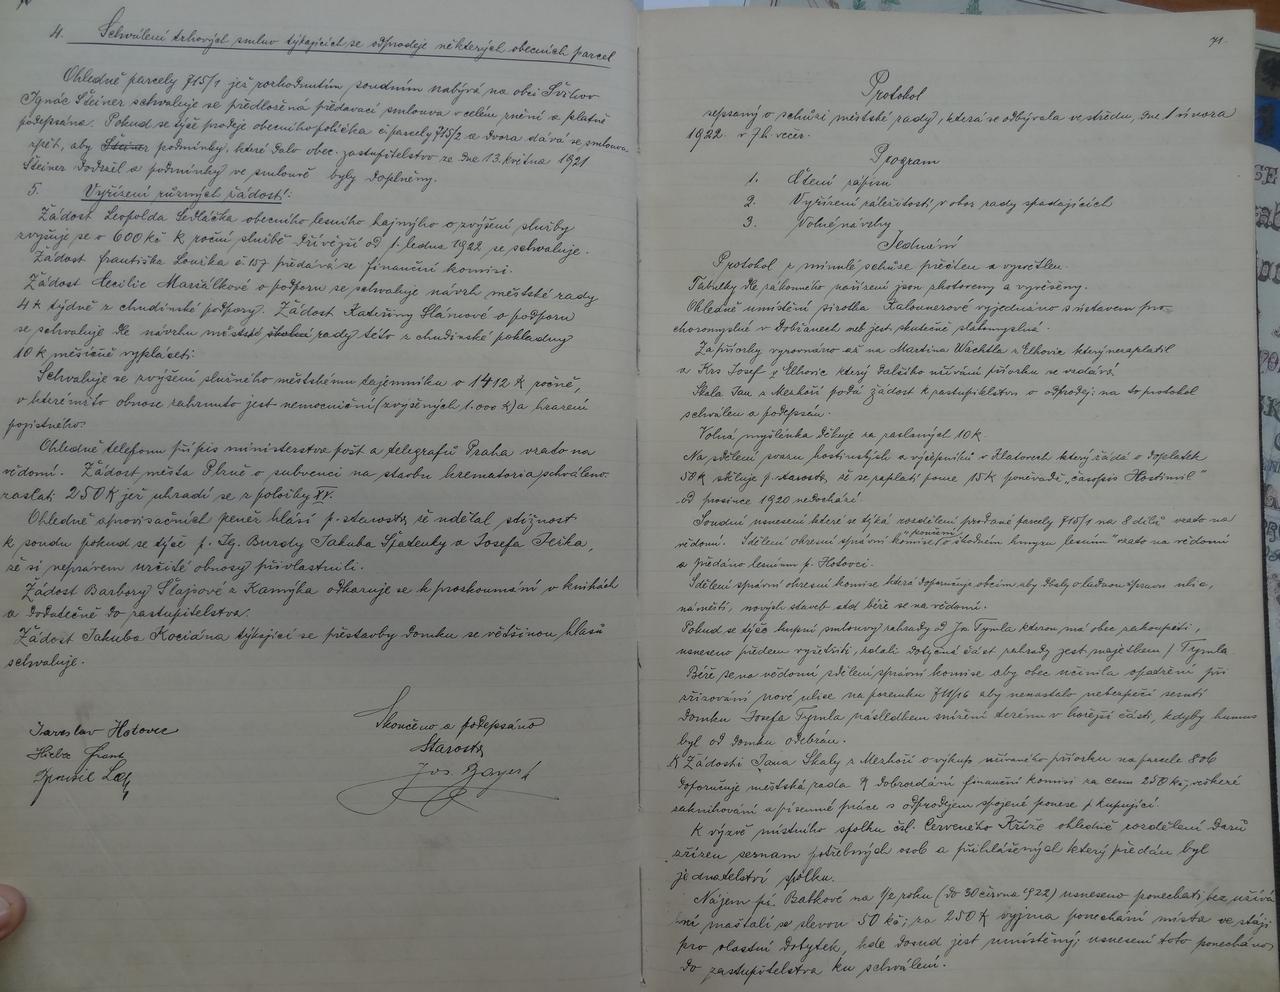 4. Schválení trhových smluv týkajících se odprodeje některých obecních parcel
Ohledně parcely 715/1 jež rozhodnutím soudním nabývá na obci Švihov
Ignác Steiner schvaluje se předložená předávací smlouva v celém znění a platně
podepsána. Pokud se týče prodeje obecního políčka č parcely 715/2 a dvora dává se smlouva
zpět, aby Steiner podmínky, které dalo obec. zastupitelstvo ze dne 13. května 1921
Steiner dodržel a podmínky ve smlouvě byly doplněny.
5. Vyřízení různých žádostí:
Žádost Leopolda Sedláčka obecního lesního hajného o zvýšení služby
zvyšuje se o 600 Kč k roční službě dřívější od 1. ledna 1922 se schvaluje.
Žádost Františka Louška č 157 předává se finanční komisi.
Žádost Cecilie Maršálkové o podporu se schvaluje návrh městské rady
4 K týdně z chudinské podpory. Žádost Kateřiny Slánové o podporu
se schvaluje dle návrhu městské školní rady této z chudinské pokladny
10 K měsíčně vypláceti.
Schvaluje se zvýšení služného městskému tajemníku o 1412 K ročně,
v kterémžto obnose zahrnuto jest nemocniční (zvýšených 1.000 K) a hrazení
pojistného.
Ohledně telefonu přípis ministerstva pošt a telegrafů Praha vzato na
vědomí. Žádost města Plzně o subvenci na stavbu krematoria schváleno
zaslati 250 K jež uhradí se z položky XV.
Ohledně aprovisačních peněz hlásí p. starosta že udělal stížnost
k soudu pokud se týče p. Ig. Burdy Jakuba Špatenky a Josefa Jeika,
že si neprávem určité obnosy přivlastnili.
Žádost Barbory Šlajsové z Kamýka odkazuje se k proskoumání v knihách
a dodatečně do zastupitelstva.
Žádost Jakuba Kociána týkající se přestavby domku se většinou hlasů
schvaluje.
Skončeno a podepsáno
Jaroslav Hotovec
Starosta
71.
Protokol
sepsaný o schůzi městské rady, která se odbývala ve středu, dne 1 února
1922 v 7 h. večer.
Program
1. Čtení zápisu
2. Vyřízení záležitostí v obor rady spadajících
3. Volné návrhy
Jednání
Protokol z minulé schůze přečten a vysvětlen.
Tabulky dle zákonného nařízení jsou zhotoveny a vyvěšeny.
Ohledně umístění sirotka Kalounerové vyjednáno s ústavem pro
choromyslné v Dobřanech neb jest skutečně slabomyslná.
Za přístřky vyrovnáno až na Martina Wachtla z Elhovic který nezaplatil
a Krs Josef z Elhovic který dalšího užívání přístřku se vzdává
Skala Jan z Mezhoří podá žádost k zastupitelstvu o odprodej; na to protokol
schválen a podepsán.
Volná myšlénka děkuje za zaslaných 10 K.
Na sdělení svazu hostinských a výčepníků v Klatovech který žádá o doplatek
50 K sděluje p. starosta, že se zaplatí pouze 15 K poněvadž „časopis Hostimil"
od prosince 1920 nedochází
Soudní usnesení které se týká rozdělení prodané parcely 715/1 na 8 dílů vzato na
vědomí. Sdělení okresní správní komise o škodném hmyzu lesním" vzato na vědomí
a předáno lesnímu p. Hotovci.
Sdělení správní okresní komise která doporučuje obcím aby dbaly o řádnou úpravu ulic,
náměstí, nových staveb atd béře se na vědomí.
Pokud se týče kupní smlouvy zahrady od Jos Tymla kterou má obec zakoupiti,
usneseno předem vyšetřiti, zdali dotyčná část zahrady jest majetkem p. Tymla.
Béře se na vědomí sdělení správní komise aby obec učinila opatření při
zřizování nové ulice na pozemku 711/16 aby nenastalo nebezpečí sesutí
domku Josefa Tymla následkem snížení terénu v hořejší části, kdyby humus
byl od domku odebrán.
K žádosti Jana Skaly z Mezhoří o výkup užívaného přístřku na parcele 806
doporučuje městská rada k dobrozdání finanční komisi za cenu 250 Kč, veškeré
zaknihování a písemné práce s odprodejem spojené ponese p kupující.
K výzvě místního spolku čsl. Červeného Kříže ohledně rozdělení darů
zřízen seznam potřebných osob a přihlášených který předán byl
jednatelství spolku.
Nájem pí. Babkové na 1/2 roku (do 30 června 1922) usneseno ponechati bez užívá
ní maštalí se slevou 50 kč; za 250 K vyjma ponechání místa ve stáji
pro vlastní dobytek, kde dosud jest umístěný; usnesení toto ponecháno
do zastupitelstva ku schválení.